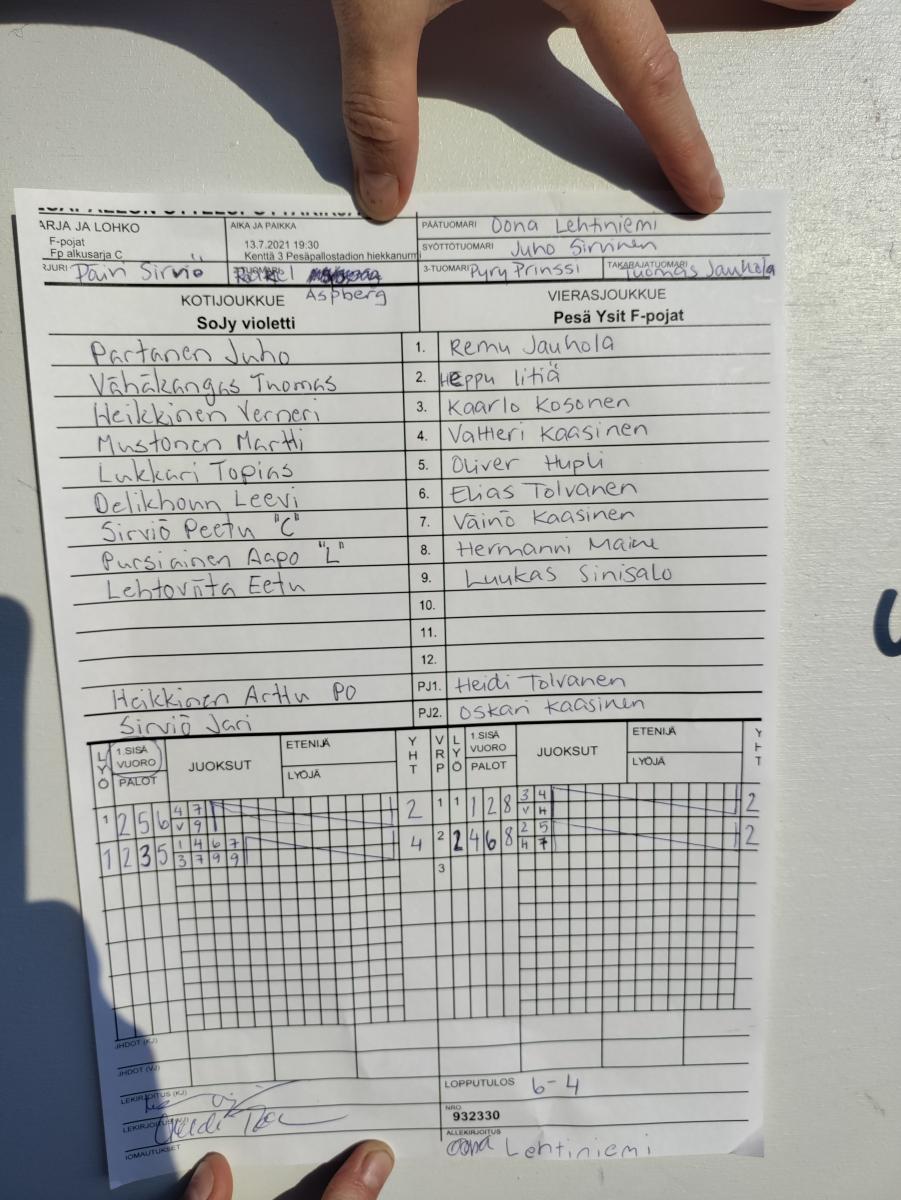 ARJA JA LOHKO
F-pojat
Fp alkusarja C
AIKA JA PAIKKA
13.7.2021 19:30
Kenttä 3 Pesäpallostadion hiekkanurmi
PÄÄTUOMARI Oona Lehtiniemi
SYÖTTÖTUOMARI Juho Sirvinen
RJURI Päivi Sirviö
Aspberg
3-TUOMARI Pyry Prinssi
TAKARAJATUOMARI Tuomas Jauhola
KOTIJOUKKUE
SoJy violetti
VIERASJOUKKUE
Pesä Ysit F-pojat
Partanen Juho 1. Remu Jauhola
Vähäkangas Tuomas 2. Heppu Iitiä
Heikkinen Verneri 3. Kaarlo Kosonen
Mustonen Martti 4. Valtteri Kaasinen
Lukkari Topias 5. Oliver Hupli
Delikhoun Leevi 6. Elias Tolvanen
Sirviö Peetu "C" 7. Väinö Kaasinen
Pursiainen Aapo "L" 8. Hermanni Maine
Lehtoviita Eetu 9. Luukas Sinisalo
10.
11.
12.
Heikkinen Arttu PO PJ1. Heidi Tolvanen
Sirviö Jari PJ2. Oskari Kaasinen
LYÖ 1.SISÄ VUORO PALOT JUOKSUT ETENIJÄ LYÖJÄ YHT VRP LYÖ 1.SISÄ VUORO PALOT JUOKSUT ETENIJÄ LYÖJÄ YHT
1 2 5 6 4 7 2 1 1 1 2 8 3 4 2
V 9 V H
1 2 3 5 1 4 6 7 4 2 2 4 6 8 2 5 2
3 7 9 9 H 7
3
JHDOT (KJ)
JHDOT (VJ)
LEKIRJOITUS (KJ)
LOPPUTULOS 6-4
LEKIRJOITUS (VJ)
NRO
932330
IOMAUTUKSET
ALLEKIRJOITUS
Oona Lehtiniemi